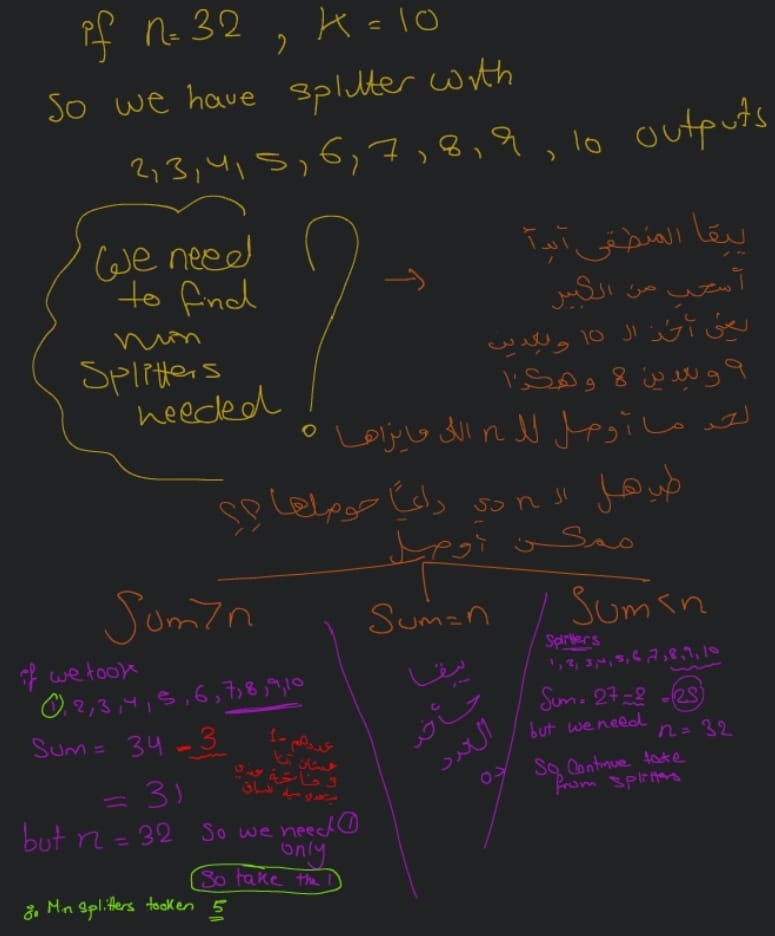 if n=32 , K=10
So we have splitter with
2,3,4,5,6,7,8,9,10 outputs
We need
to find
min
Splitters
needed
?
→
يبقا المنطقى أبدأ
أسحب من الكبير
يعنى آخذ الـ 10 وبعدين
9 وبعدين 8 وهكذا
لحد ما أوصل للـ n اللى عايزاها
طب هل الـ n دي دايمًا حوصلها ؟؟
ممكن أوصل
Sum>n
if we took
1,2,3,4,5,6,7,8,9,10
Sum = 34 - 3
عددهم -1
= 31
but n = 32 So we need 1
only
So take the 1
∴ Min splitters tooken 5
Sum=n
يبقا
حأخد
العدد
ده
Sum<n
Splitters
1,2,3,4,5,6,7,8,9,10
Sum = 27-2 = 25
but we need n = 32
So Continue take
from splitters